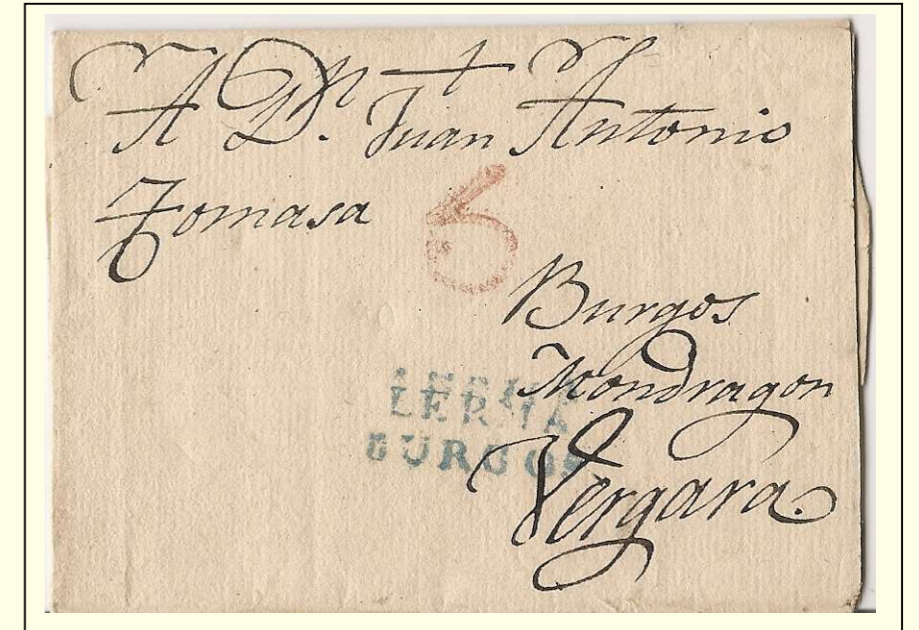 A Dn. Juan Antonio
Zomasa
6
Burgos
Mondragon
LERMA
BURGOS
Vergara.